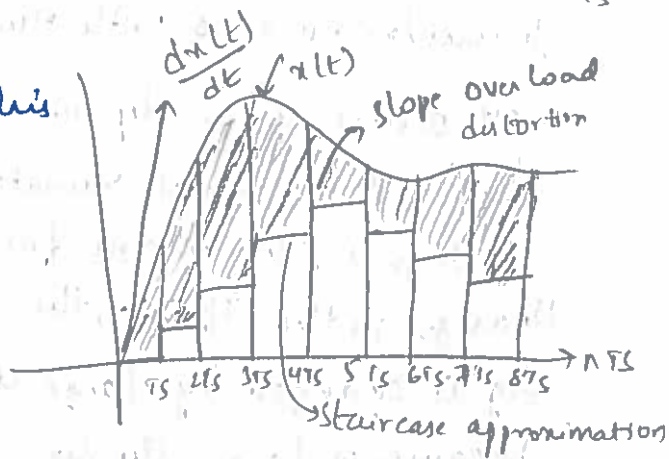 dx(t)
dt
x(t)
slope over load
distortion
nTs
Ts 2Ts 3Ts 4Ts 5Ts 6Ts 7Ts 8Ts
staircase approximation